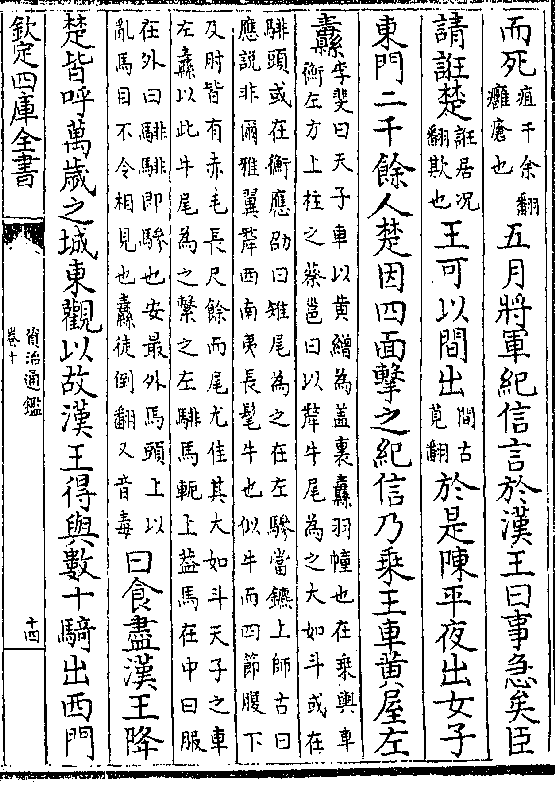 而死疽千余翻
癰瘡也五月將軍紀信言於漢王曰事急矣臣
請誑楚誑居况
翻欺也王可以間出間古
莧翻於是陳平夜出女子
東門二千餘人楚因四面擊之紀信乃乘王車黄屋左
纛李斐曰天子車以黄繒為盖裏纛羽幢也在乘輿車
衡左方上柱之蔡邕曰以犛牛尾為之大如斗或在
騑頭或在衡應劭曰雉尾為之在左驂當鑣上師古曰
應説非爾雅翼犛西南夷長髦牛也似牛而四節腹下
及肘皆有赤毛長尺餘而尾尤佳其大如斗天子之車
左纛以此牛尾為之繫之左騑馬軛上葢馬在中曰服
在外曰騑騑即驂也安最外馬頭上以
亂馬目不令相見也纛徒倒翻又音毒曰食盡漢王降
楚皆呼萬歲之城東觀以故漢王得與數十騎出西門
欽定四庫全書
資治通鑑
卷十
十四